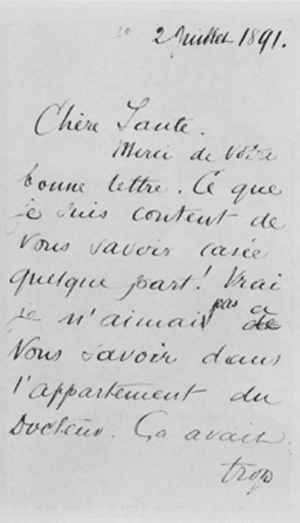 2 Juillet 1891.
Chère Tante.
Merci de votre
bonne lettre. Ce que
je suis content de
vous savoir casée
quelque part! Vrai
je n'aimais pas à
vous savoir dans
l'appartement du
Docteur. Ça avait
trop